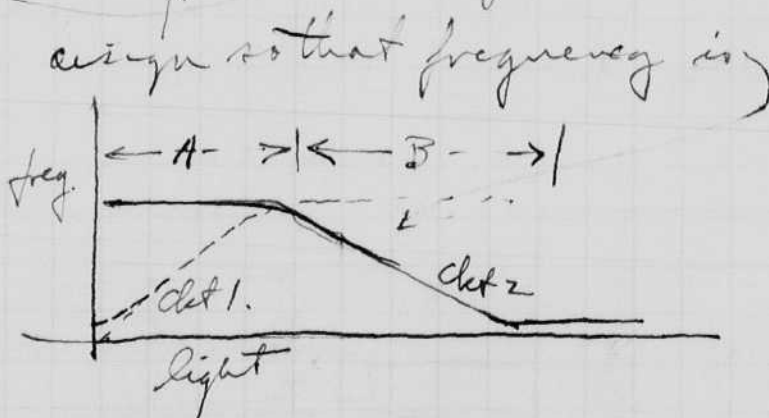 design so that frequency is
A
B
freq.
ckt 1.
ckt 2
light